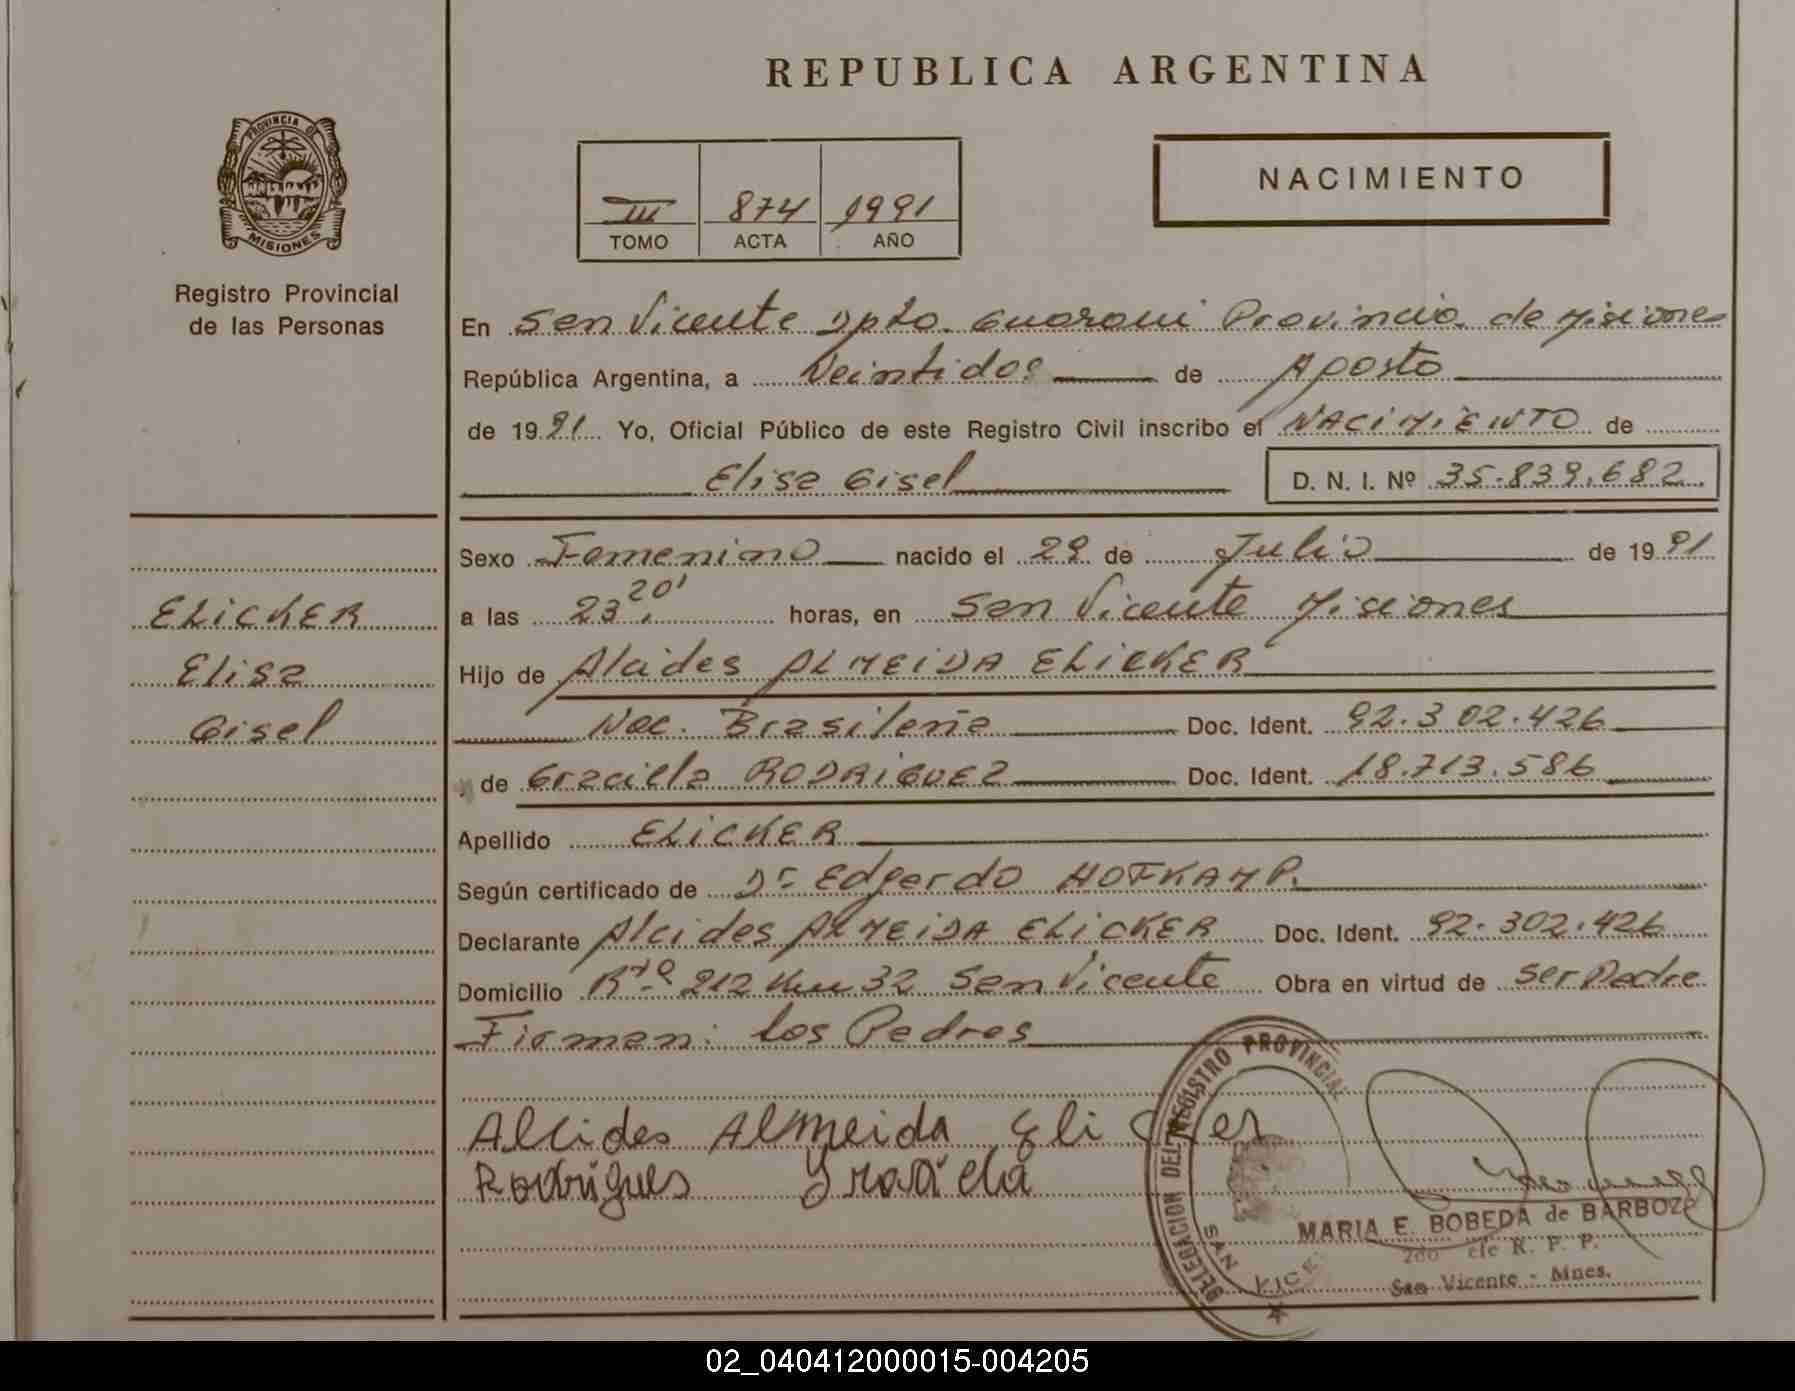 REPUBLICA ARGENTINA
PROVINCIA DE
MISIONES
Registro Provincial
de las Personas
III 874 1991
TOMO ACTA AÑO
NACIMIENTO
En San Vicente Dpto. Guarani Provincia de Misiones
República Argentina, a Veintidos de Agosto
de 1991 Yo, Oficial Público de este Registro Civil inscribo el NACIMIENTO de
Elisa Gisel D. N. I. Nº 35.839.682.
Sexo Femenino nacido el 29 de Julio de 1991
a las 23,20' horas, en San Vicente Misiones
Hijo de Alcides ALMEIDA ELICKER
Nac. Brasileña Doc. Ident. 92.302.426
y de Graciela RODRIGUEZ Doc. Ident. 18.713.586
Apellido ELICKER
Según certificado de Dr Edgardo HOFKAMP.
Declarante Alcides ALMEIDA ELICKER Doc. Ident. 92.302.426
Domicilio Rta 212 Km 32 San Vicente Obra en virtud de ser Padre
Firman: los Padres
ELICKER
Elisa
Gisel
Alcides Almeida Elicker
Rodrigues Graciela
DELEGACION DEL REGISTRO PROVINCIAL
SAN VICE
MARIA E. BOBEDA de BARBOZA
2do R. P. P.
San Vicente - Mnes.
02_040412000015-004205